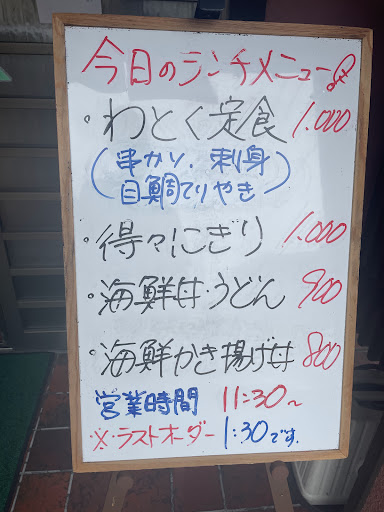 今日のランチメニュー
・わとく定食 1.000
(串かつ.刺身
目鯛てりやき)
・得々にぎり 1.000
・海鮮丼・うどん 900
・海鮮かき揚げ丼 800
営業時間 11:30~
※・ラストオーダー 1:30です.